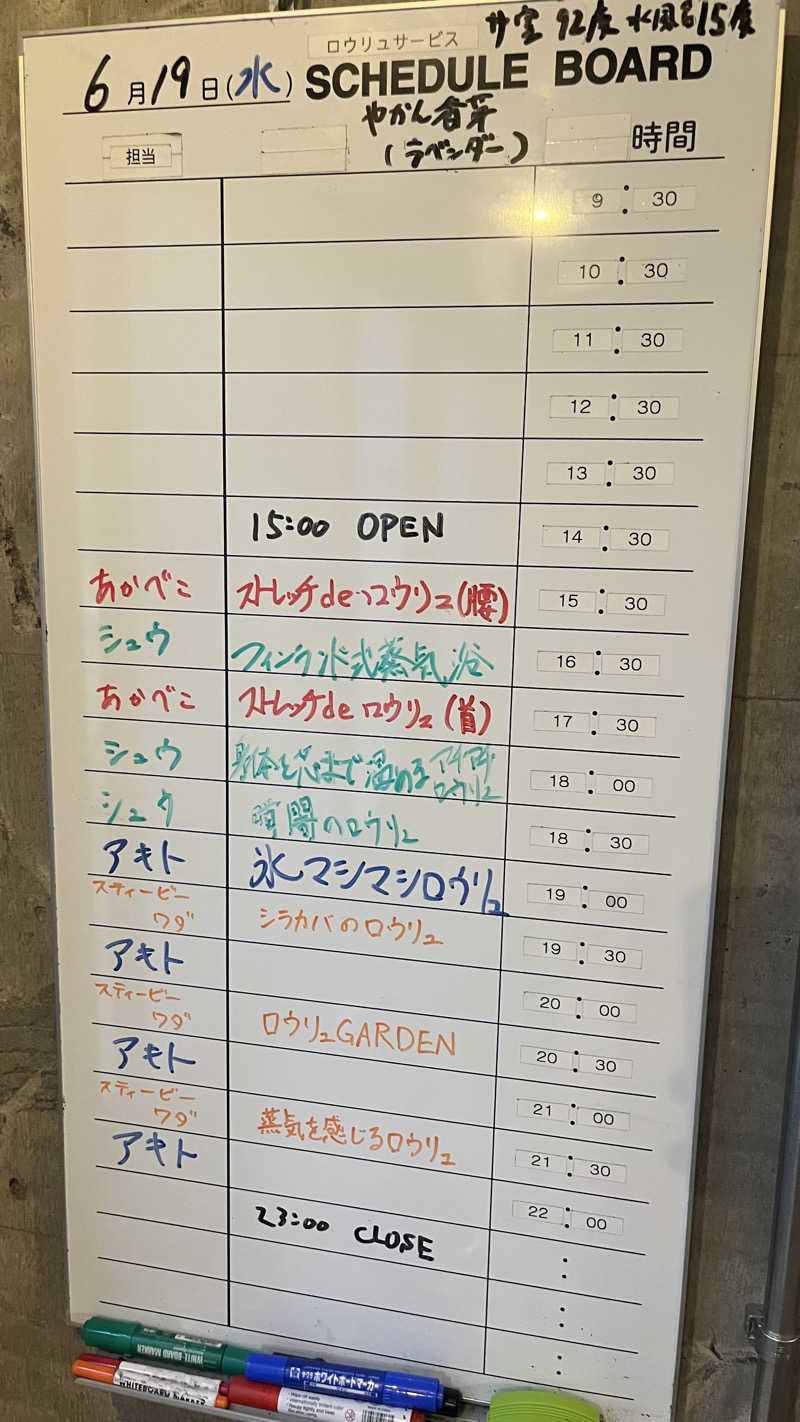 ロウリュサービス
サ室 92度 水風呂15度
6月19日(水) SCHEDULE BOARD
やかん香芽
(ラベンダー)
担当 時間
9:30
10:30
11:30
12:30
13:30
15:00 OPEN 14:30
あかべこ ストレッチdeロウリュ(腰) 15:30
シュウ フィンランド式蒸気浴 16:30
あかべこ ストレッチdeロウリュ(首) 17:30
シュウ 身体を芯まで温める ロウリュ 18:00
シュウ 暗闇のロウリュ 18:30
アキト 氷マシマシロウリュ 19:00
スティービーワダ シラカバのロウリュ 19:30
アキト 20:00
スティービーワダ ロウリュGARDEN 20:30
アキト 21:00
スティービーワダ 蒸気を感じるロウリュ 21:30
アキト 22:00
23:00 CLOSE
WHITE BOARD MARKER
ホワイトボードマーカー
WHITEBOARD MARKER